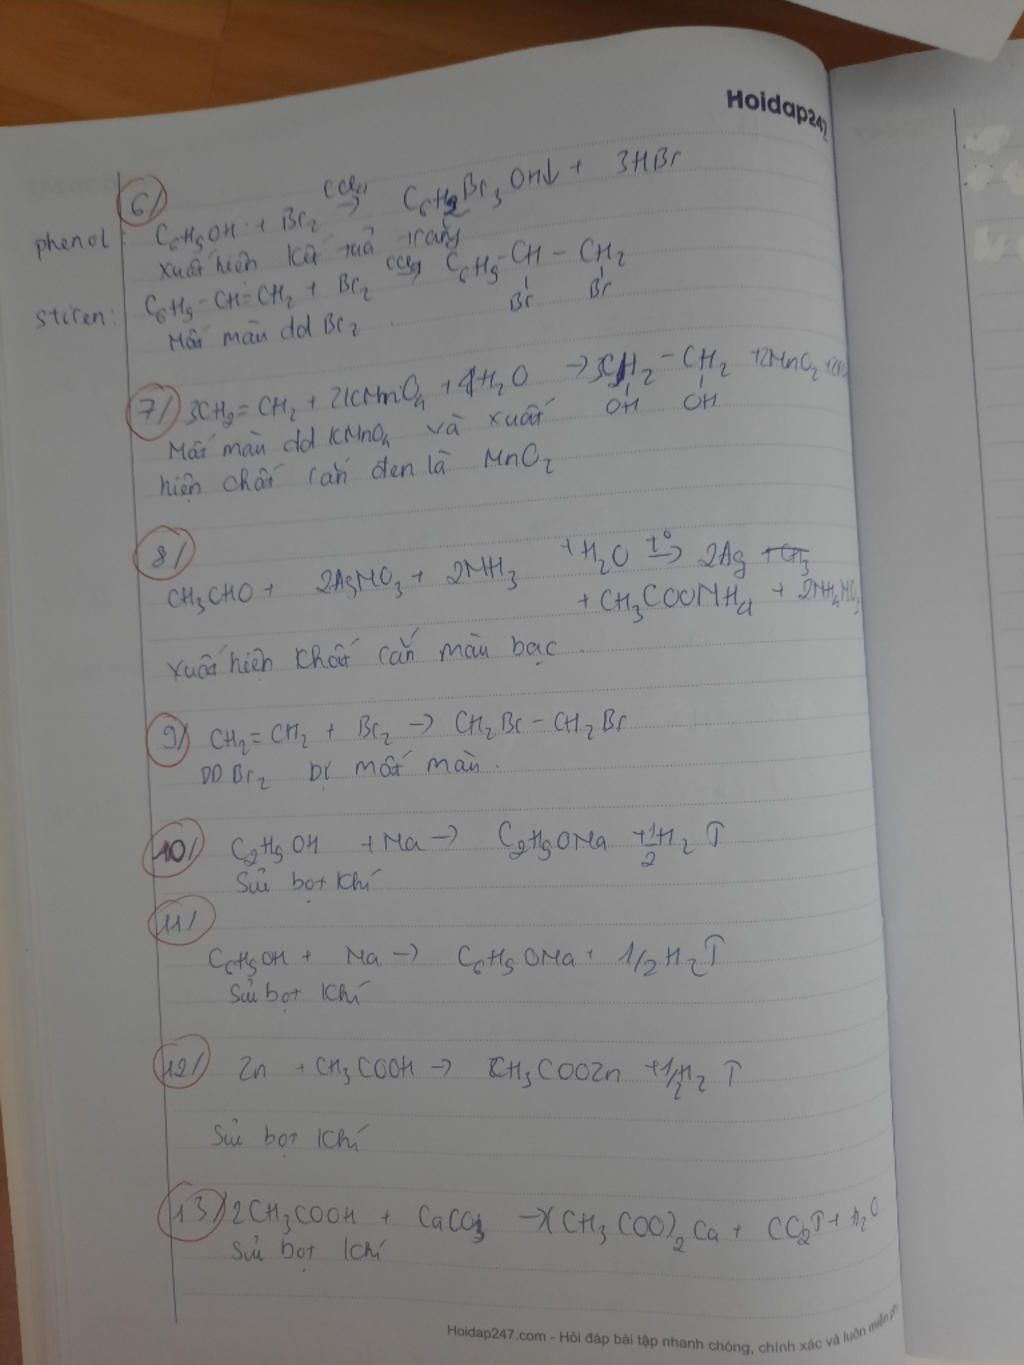 Hoidap247
6/
CCl4
phenol : C6H5OH + Br2 → C6H2Br3OH↓ + 3HBr
Xuất hiện kết tủa trắng
stiren: C6H5-CH=CH2 + Br2 CCl4 C6H5-CH-CH2
Br Br
Mất màu dd Br2.
7/ 3CH2=CH2 + 2KMnO4 + 4H2O → 3CH2-CH2 + 2MnO2
OH OH
Mất màu dd KMnO4 và xuất
hiện chất rắn đen là MnO2
8/
CH3CHO + 2AgNO3 + 2NH3 + H2O t° → 2Ag
+ CH3COONH4 + 2NH4NO3
Xuất hiện chất rắn màu bạc.
9/ CH2=CH2 + Br2 → CH2Br-CH2Br
DD Br2 bị mất màu.
10/ C2H5OH + Na → C2H5ONa + 1/2 H2 ↑
Sủi bọt khí
11/
C6H5OH + Na → C6H5ONa + 1/2 H2↑
Sủi bọt khí
12/ Zn + CH3COOH → CH3COOZn + 1/2 H2 ↑
Sủi bọt khí
13/ 2CH3COOH + CaCO3 → (CH3COO)2Ca + CO2↑ + H2O
Sủi bọt khí
Hoidap247.com - Hỏi đáp bài tập nhanh chóng, chính xác và luôn miễn ph